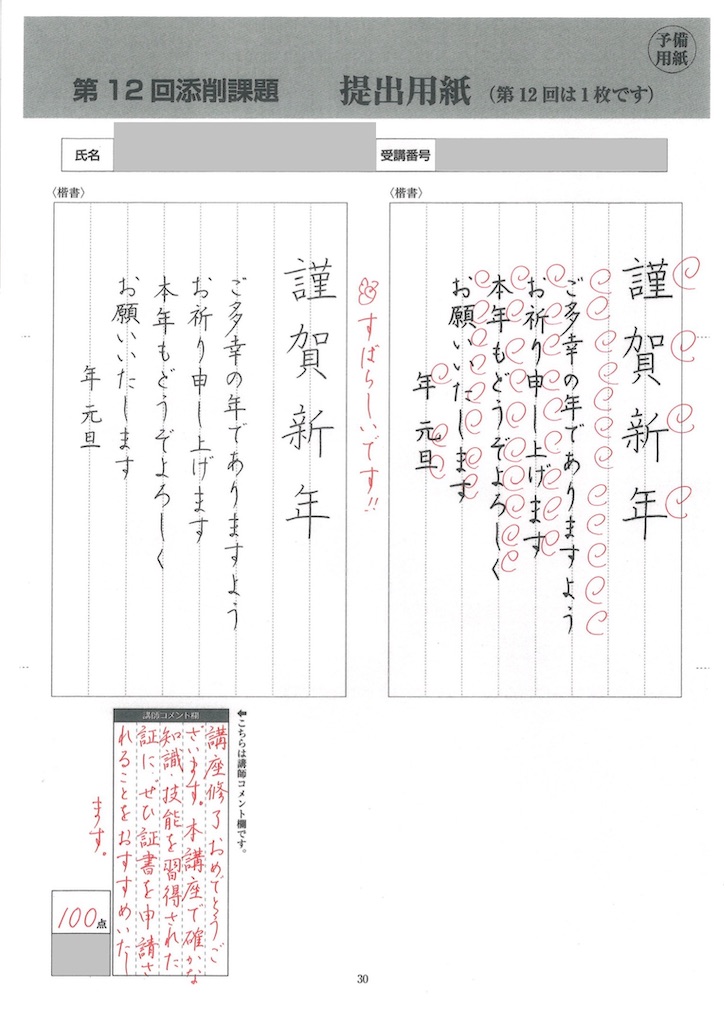 予備
用紙
第12回添削課題 提出用紙 (第12回は1枚です)
氏名
受講番号
〈楷書〉
謹賀新年
ご多幸の年でありますよう
お祈り申し上げます
本年もどうぞよろしく
お願いいたします
年 元旦
すばらしいです!!
〈楷書〉
謹賀新年
ご多幸の年でありますよう
お祈り申し上げます
本年もどうぞよろしく
お願いいたします
年 元旦
⬅こちらは講師コメント欄です。
講師コメント欄
講座修了おめでとうご
ざいます。本講座で確かな
知識・技能を習得された
証に、ぜひ証書を申請さ
れることをおすすめいたし
ます。
100点
30